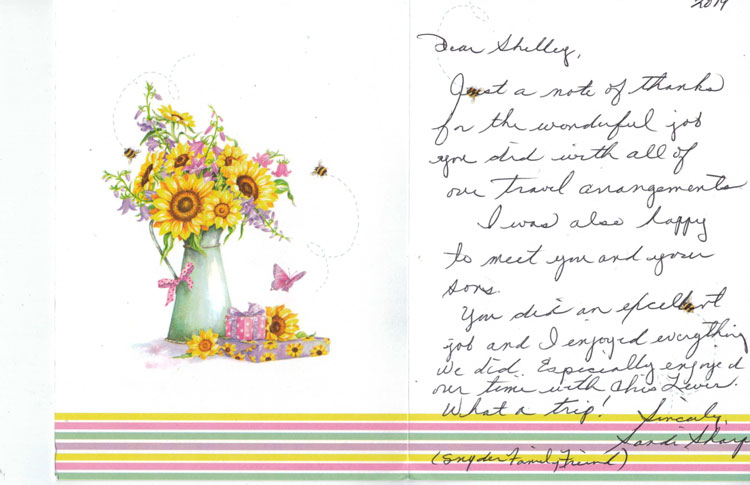 2019
Dear Shelley,
Just a note of thanks
for the wonderful job
you did with all of
our travel arrangements
I was also happy
to meet you and your
sons.
You did an excellent
job and I enjoyed everything
we did. Especially enjoyed
our time with this Lever.
What a trip!
Sincerly,
Sandi Sharp
(Snyder Family Friend)